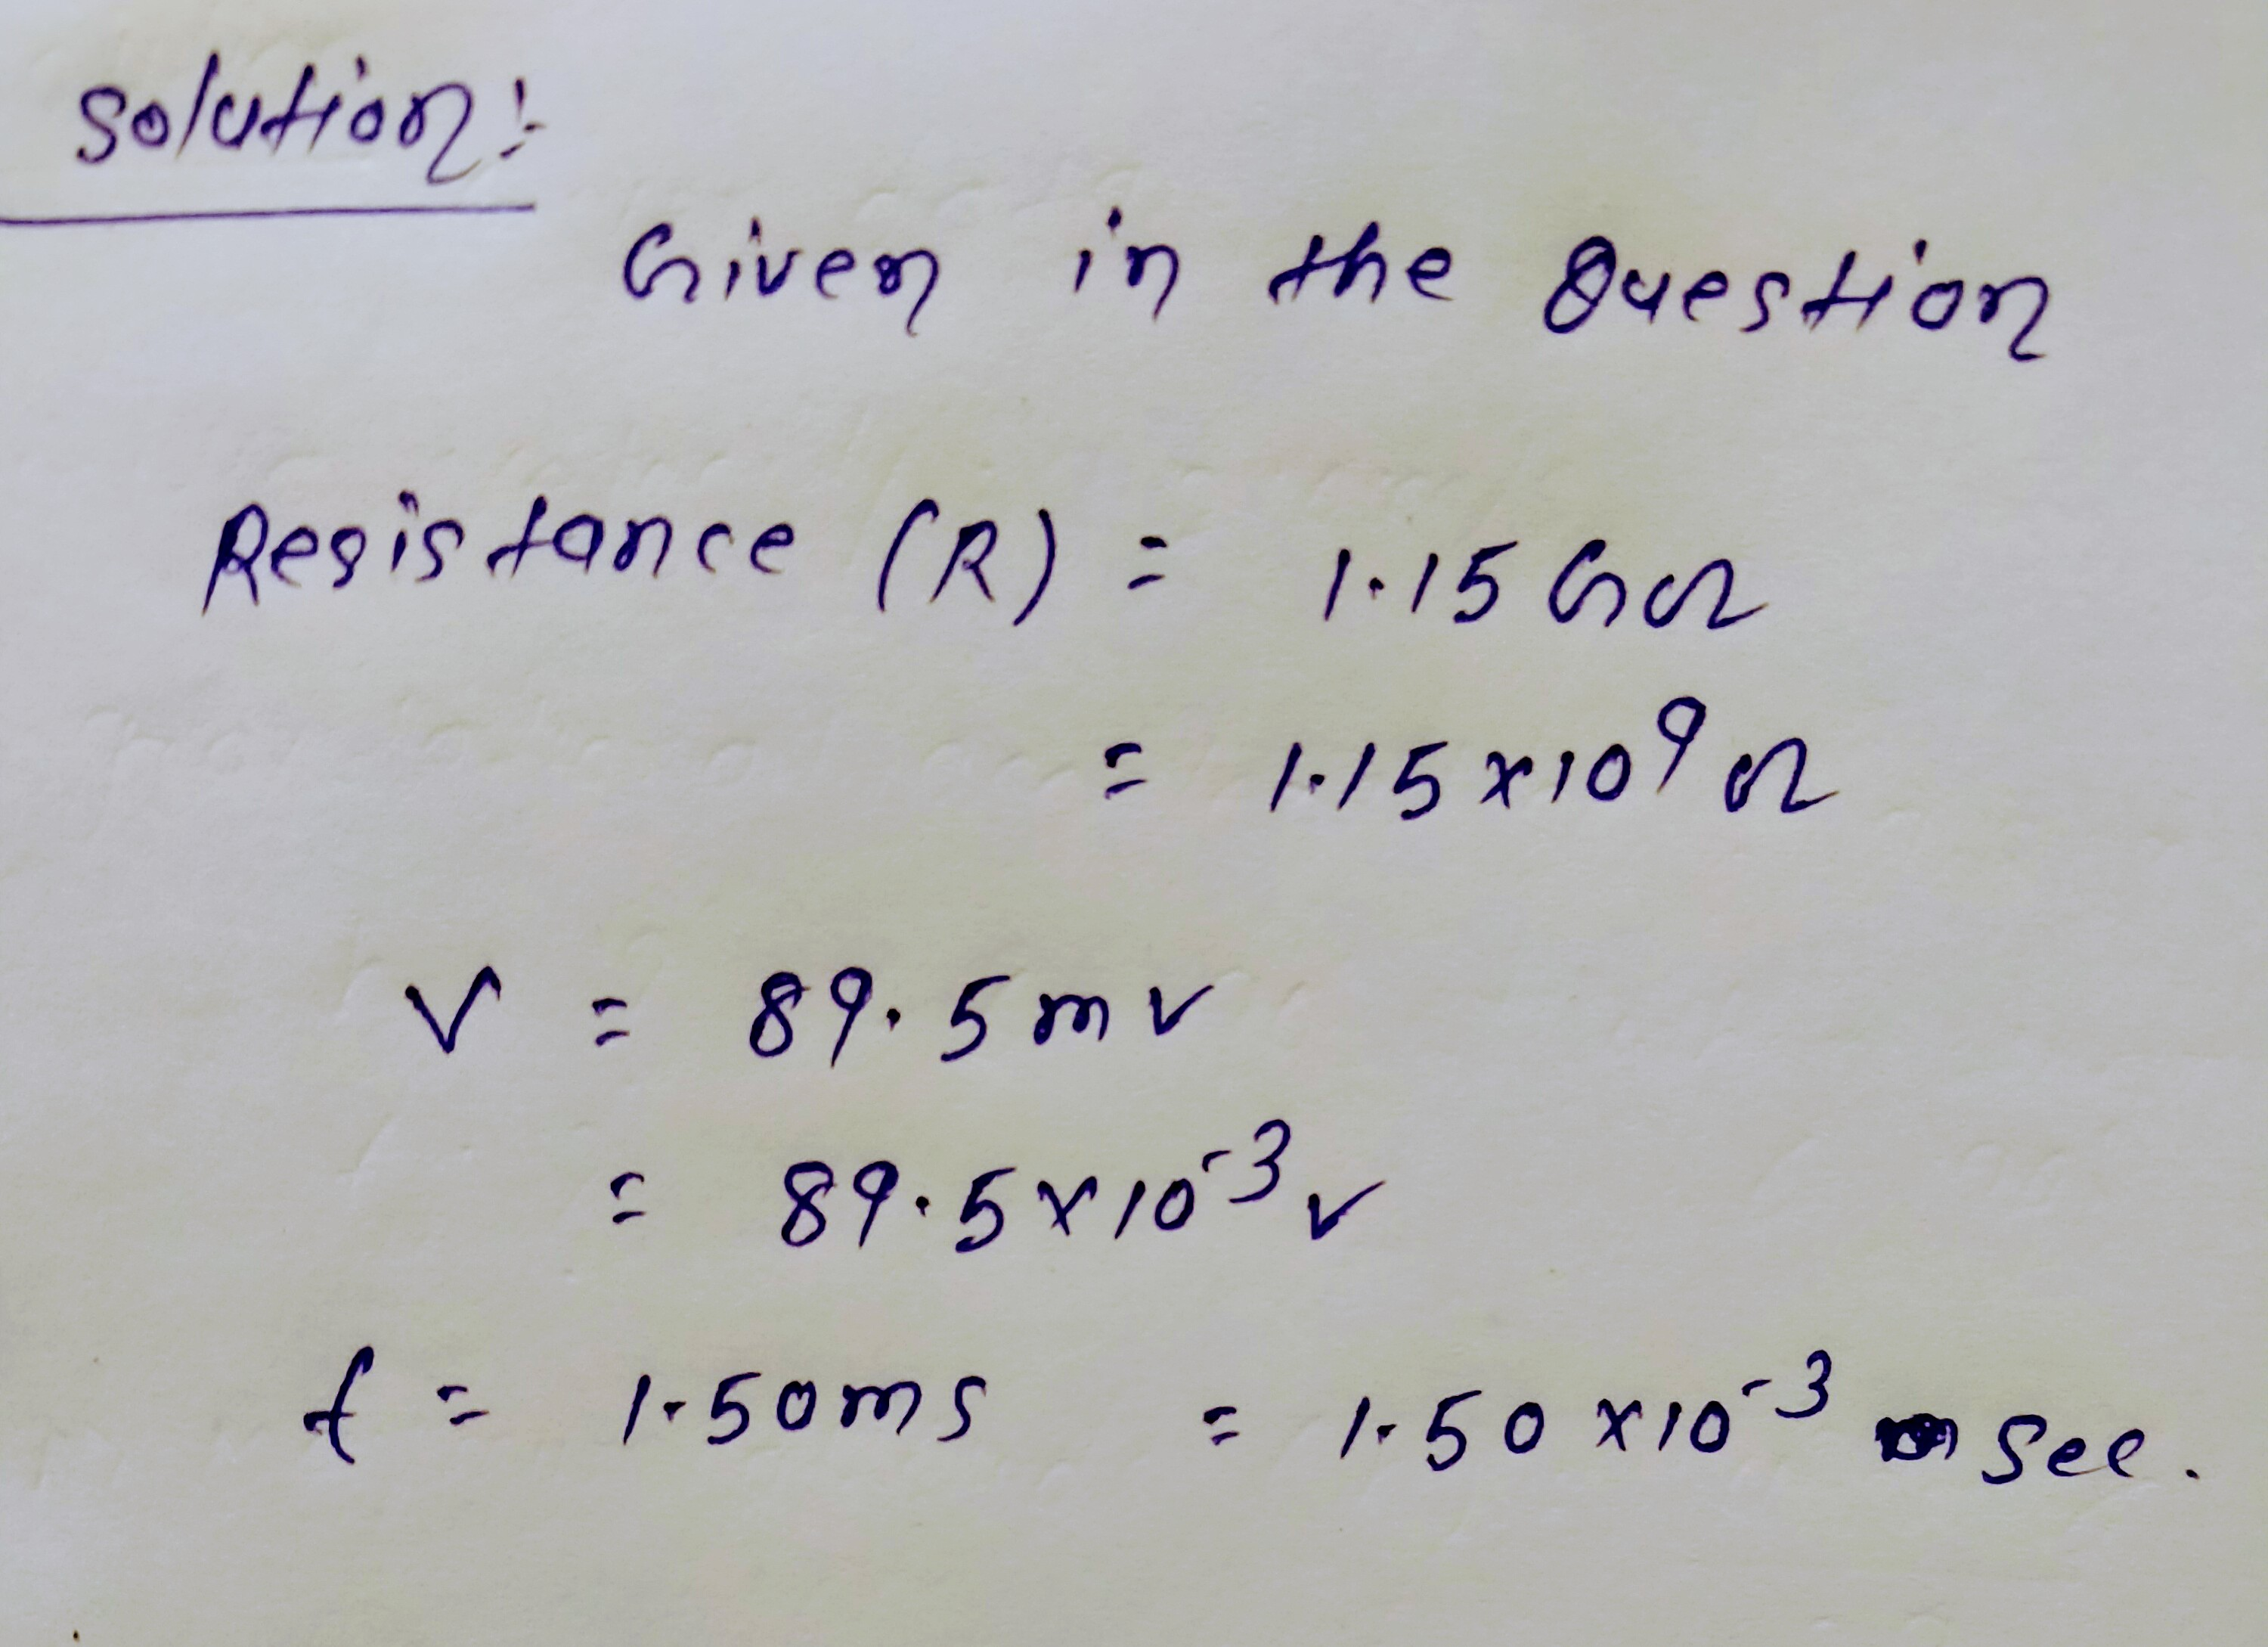 Solution:-
Given in the Question
Resistance (R) = 1.15 GΩ
= 1.15 x 10⁹ Ω
V = 89.5 mv
= 89.5 x 10⁻³ v
t = 1.50 ms = 1.50 x 10⁻³ sec.